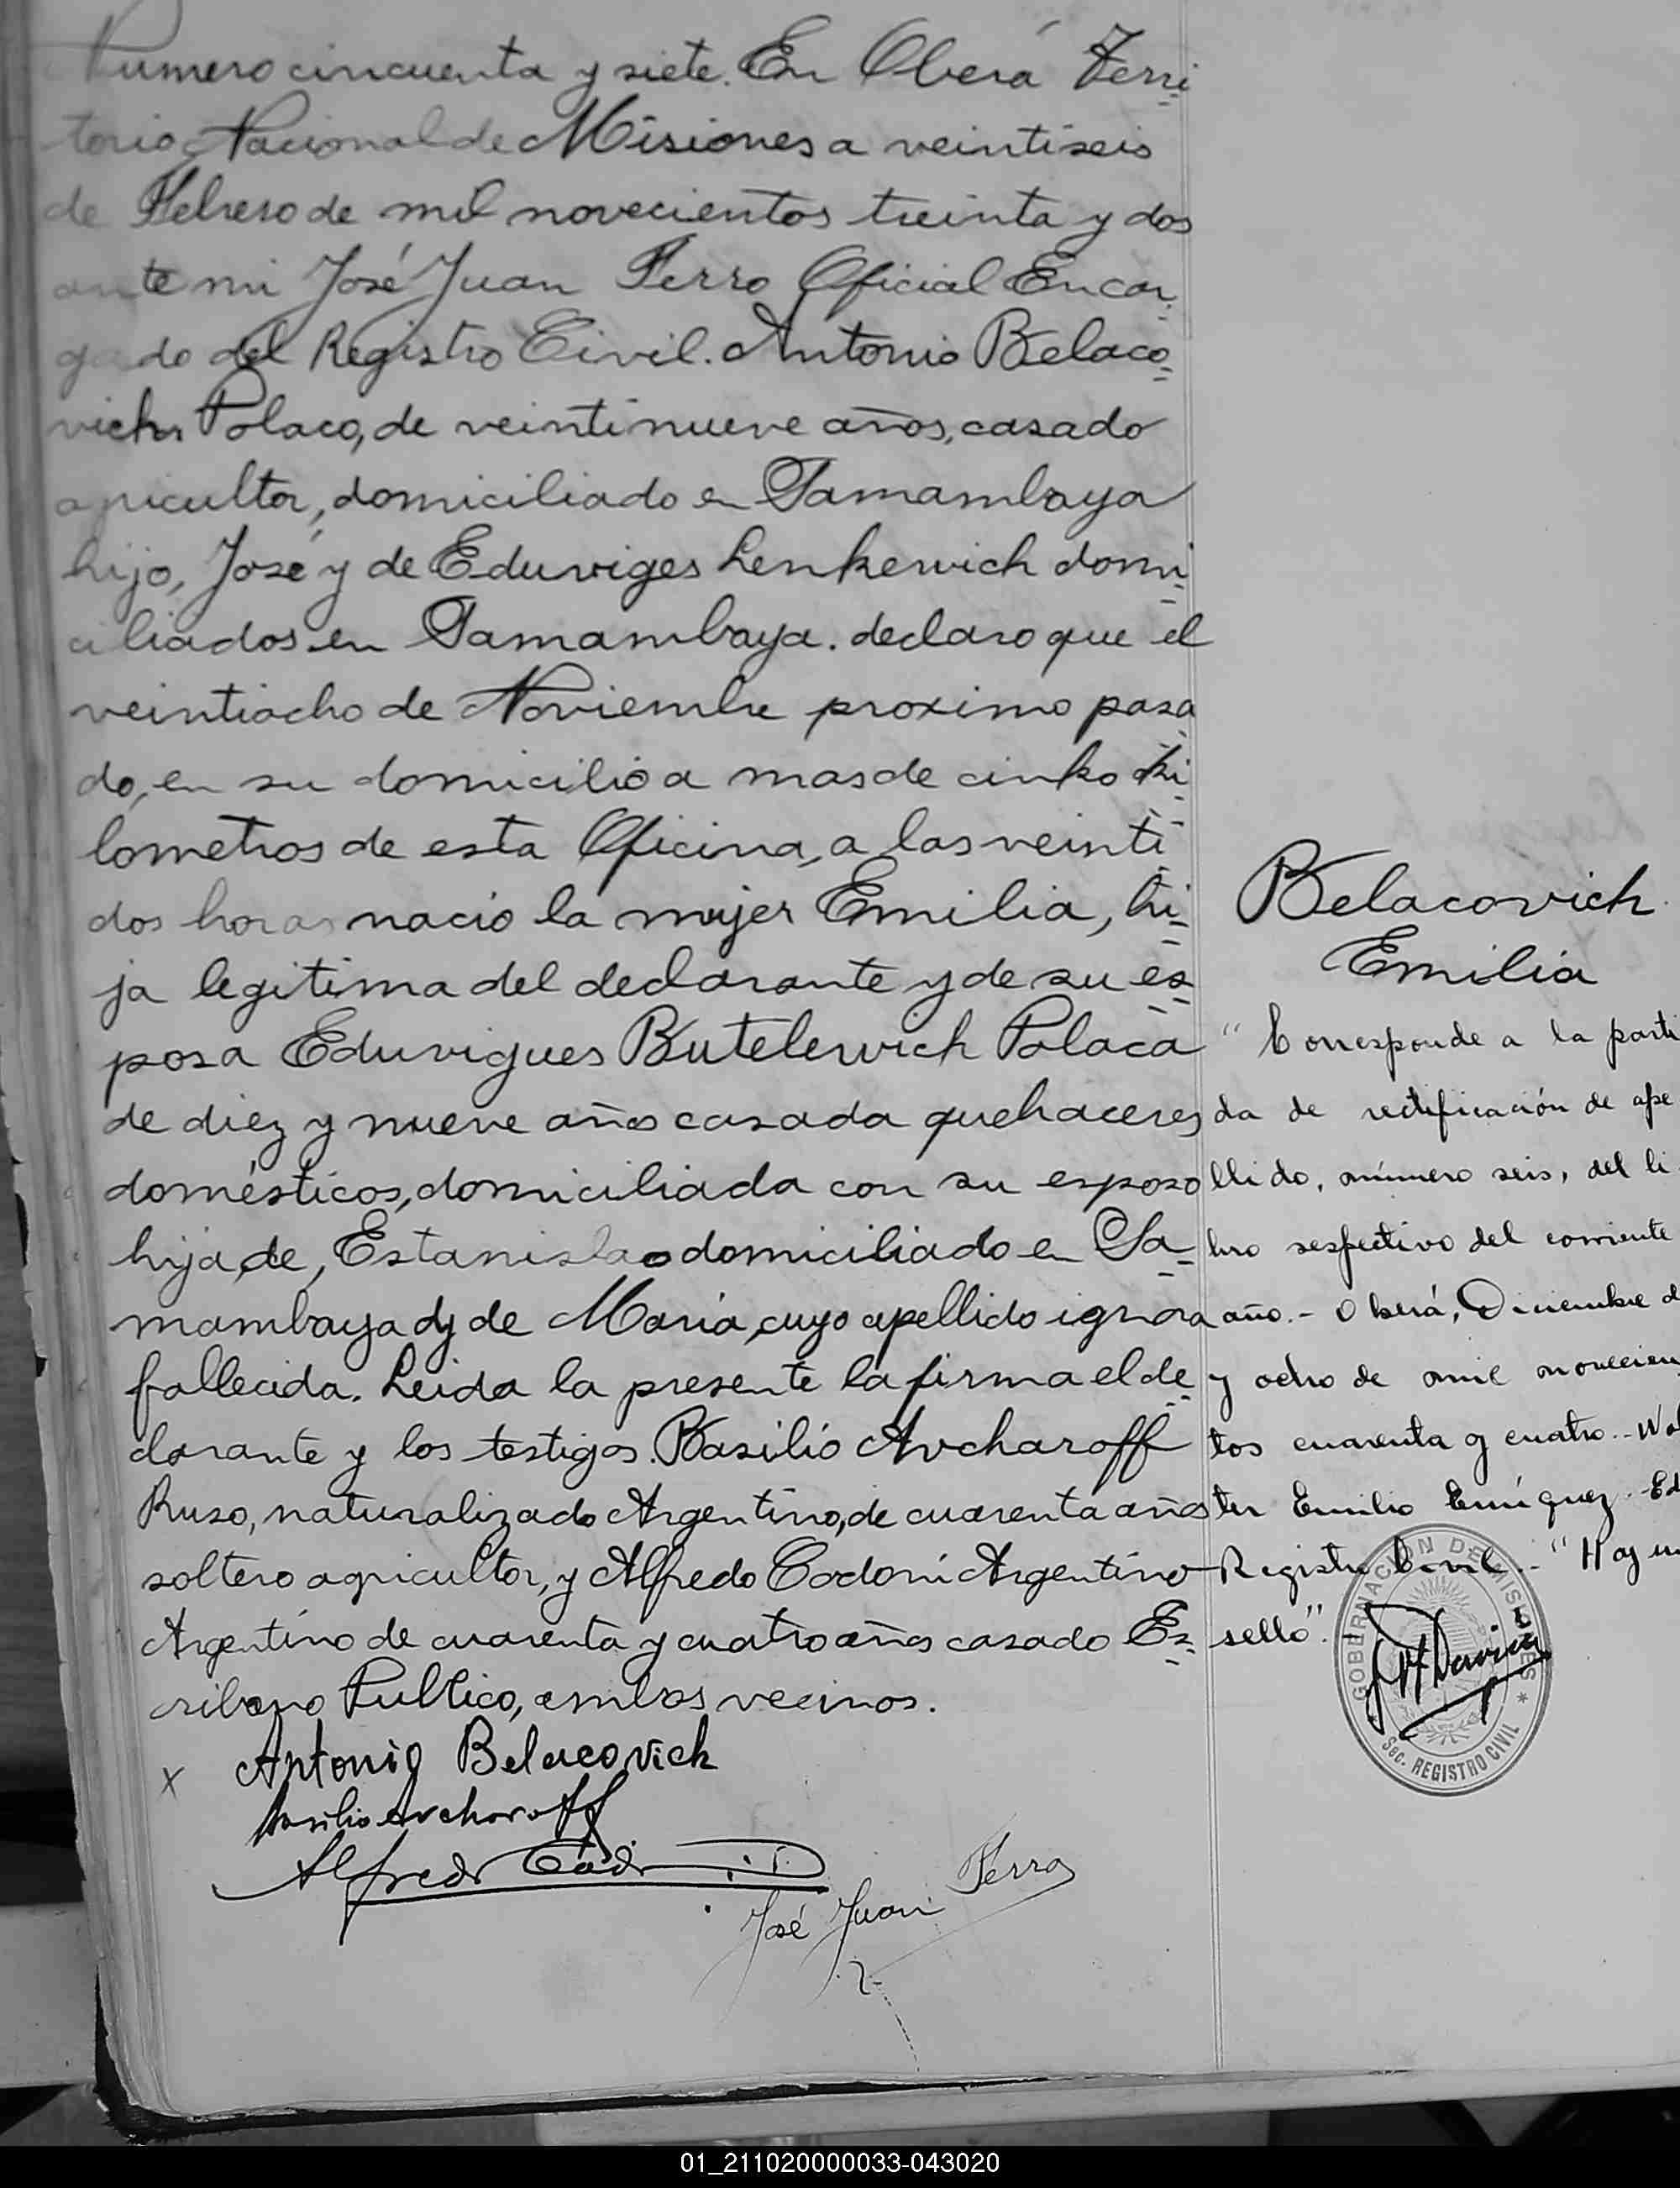 Numero cincuenta y siete. En Oberá Terri
torio Nacional de Misiones a veintiseis
de Febrero de mil novecientos treinta y dos
ante mi José Juan Ferro Oficial Encar
gado del Registro Civil. Antonio Belaco
vich Polaco, de veintinueve años, casado
agricultor, domiciliado en Samambaya
hijo, José y de Eduviges Lenkewich domi
ciliados en Samambaya. declaro que el
veintiocho de Noviembre proximo pasa
do, en su domicilio a mas de cinko ki
lometros de esta Oficina, a las veinti
dos horas nacio la mujer Emilia, hi
ja legitima del declarante y de su es
posa Eduvigues Butelewich Polaca
de diez y nueve años casada quehaceres
domésticos, domiciliada con su esposo
hija de, Estanislao domiciliado en Sa
mambaya y de Maria, cuyo apellido ignora
fallecida. Leida la presente la firma el de
clarante y los testigos. Basilio Avcharoff
Ruso, naturalizado Argentino, de cuarenta años
soltero agricultor, y Alfredo Codoni Argentino
Argentino de cuarenta y cuatro años casado Es
cribano Publico, ambos vecinos.
x Antonio Belacovich
Basilio Avcharoff
Alfredo
José Juan Ferro
Belacovich
Emilia
" Corresponde a la parti
da de rectificación de ape
llido, número seis, del li
bro respectivo del corriente
año. - Oberá, Diciembre d
y ocho de mil novecien
tos cuarenta y cuatro. - Wal
ter Emilio Enriquez - Ed
Registro Civil. - "Hay un
sello".
GOBERNACION DE MISIONES
Sec. REGISTRO CIVIL
01_211020000033-043020